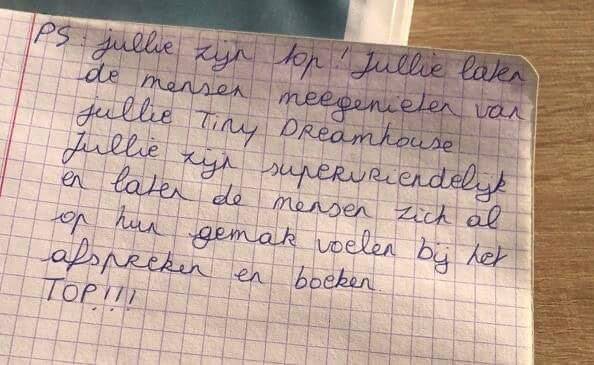 PS: jullie zijn top! Jullie laten
de mensen meegenieten van
jullie Tiny Dreamhouse
Jullie zijn supervriendelijk
en laten de mensen zich al
op hun gemak voelen bij het
afspreken en boeken.
TOP!!!